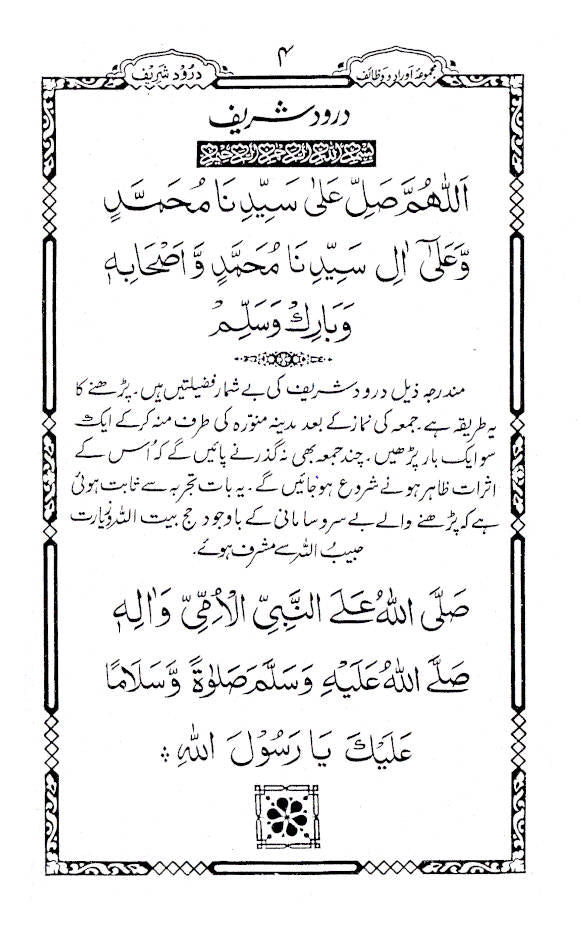 مجموعۂ اوراد و وظائف
۴
درود شریف
درود شریف
بسم اللہ الرحمٰن الرحیم
اَللّٰهُمَّ صَلِّ عَلٰی سَيِّدِنَا مُحَمَّدٍ
وَّعَلٰٓی اٰلِ سَيِّدِنَا مُحَمَّدٍ وَّاَصْحَابِهٖ
وَبَارِكْ وَسَلِّمْ
مندرجہ ذیل درود شریف کی بے شمار فضیلتیں ہیں۔ پڑھنے کا
یہ طریقہ ہے۔ جمعہ کی نماز کے بعد مدینہ منوّرہ کی طرف منہ کر کے ایک
سو ایک بار پڑھیں۔ چند جمعہ بھی نہ گذرنے پائیں گے کہ اُس کے
اثرات ظاہر ہونے شروع ہو جائیں گے۔ یہ بات تجربہ سے ثابت ہوئی
ہے کہ پڑھنے والے بے سروسامانی کے باوجود حج بیت اللہ و زیارت
حبیبُ اللہ سے مشرف ہوئے۔
صَلَّی اللّٰهُ عَلَے النَّبِیِّ الْاُمِّیِّ وَاٰلِهٖ
صَلَّے اللّٰهُ عَلَيْهِ وَسَلَّمَ صَلٰوةً وَّسَلَامًا
عَلَيْكَ يَا رَسُوْلَ اللّٰهِ